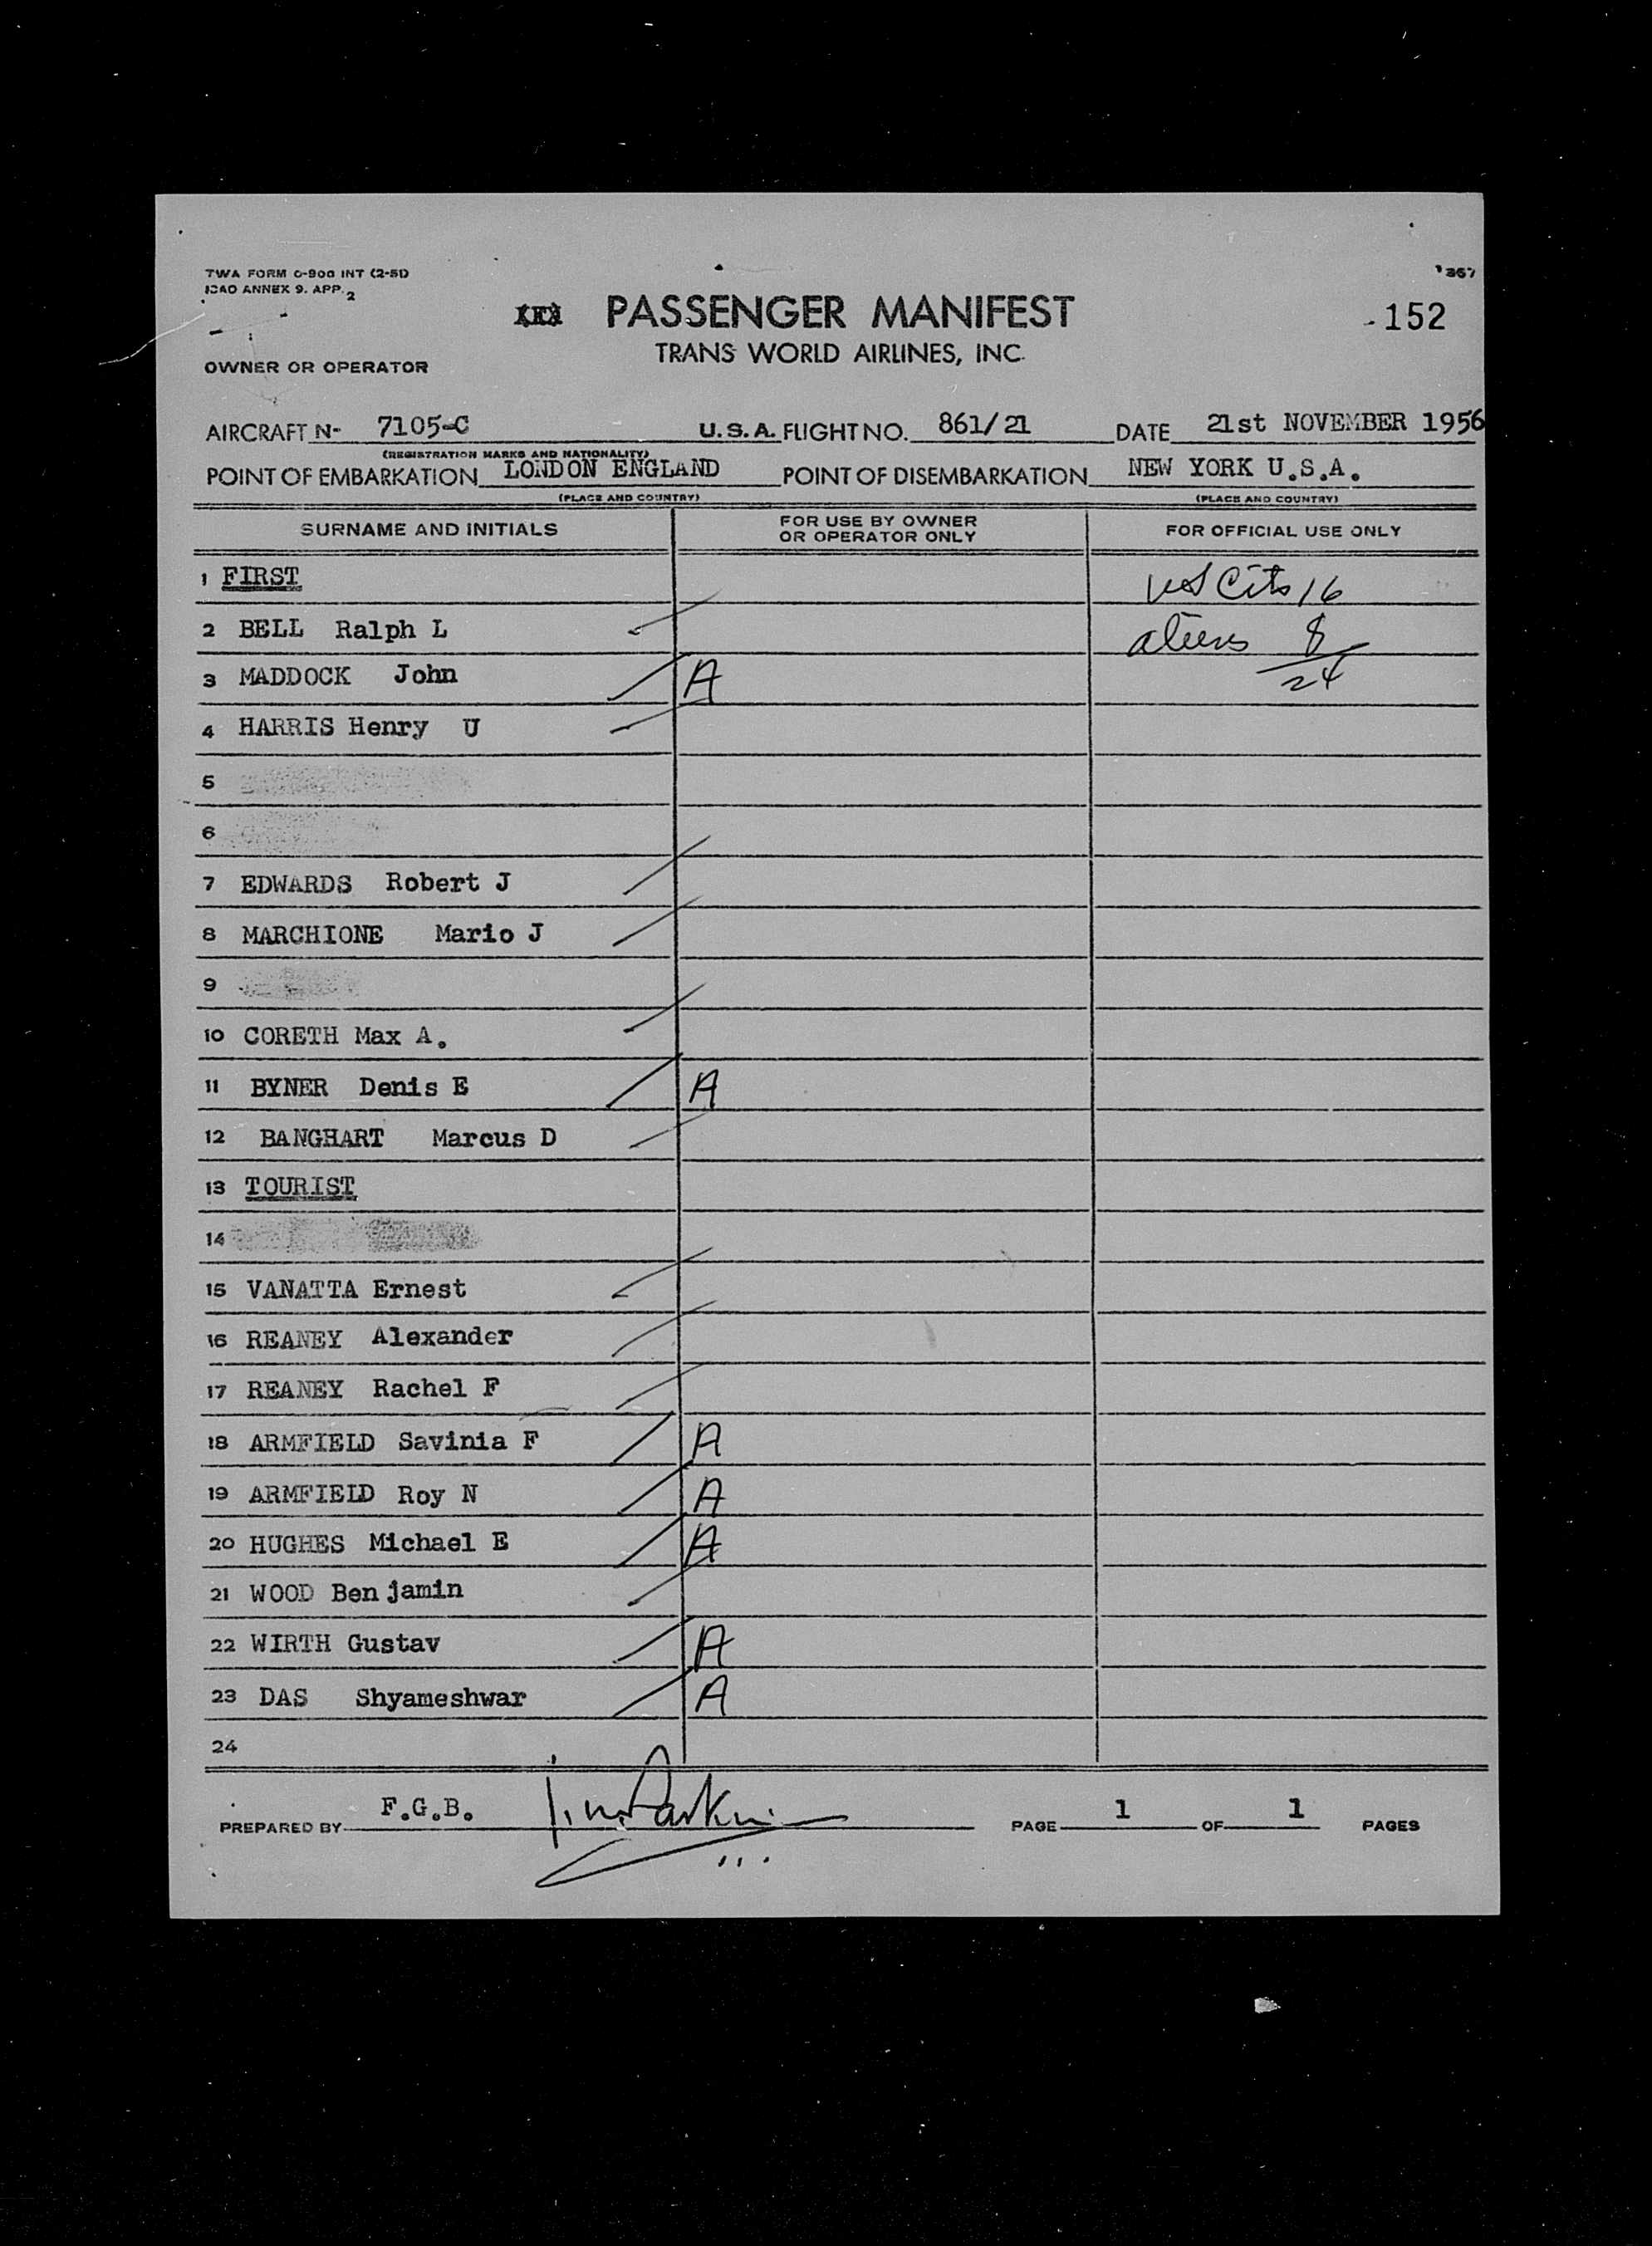 TWA FORM O-900 INT (2-51)
ICAO ANNEX 9. APP. 2
PASSENGER MANIFEST
-152
TRANS WORLD AIRLINES, INC.
OWNER OR OPERATOR
AIRCRAFT N- 7105-C U.S.A. FLIGHT NO. 861/21 DATE 21st NOVEMBER 1956
(REGISTRATION MARKS AND NATIONALITY)
POINT OF EMBARKATION LONDON ENGLAND POINT OF DISEMBARKATION NEW YORK U.S.A.
(PLACE AND COUNTRY) (PLACE AND COUNTRY)
SURNAME AND INITIALS FOR USE BY OWNER OR OPERATOR ONLY FOR OFFICIAL USE ONLY
1 FIRST US Cits 16
2 BELL Ralph L aliens 8
3 MADDOCK John A 24
4 HARRIS Henry U
5
6
7 EDWARDS Robert J
8 MARCHIONE Mario J
9
10 CORETH Max A.
11 BYNER Denis E A
12 BANGHART Marcus D
13 TOURIST
14
15 VANATTA Ernest
16 REANEY Alexander
17 REANEY Rachel F
18 ARMFIELD Savinia F A
19 ARMFIELD Roy N A
20 HUGHES Michael E A
21 WOOD Benjamin
22 WIRTH Gustav A
23 DAS Shyameshwar A
24
PREPARED BY F.G.B. PAGE 1 OF 1 PAGES